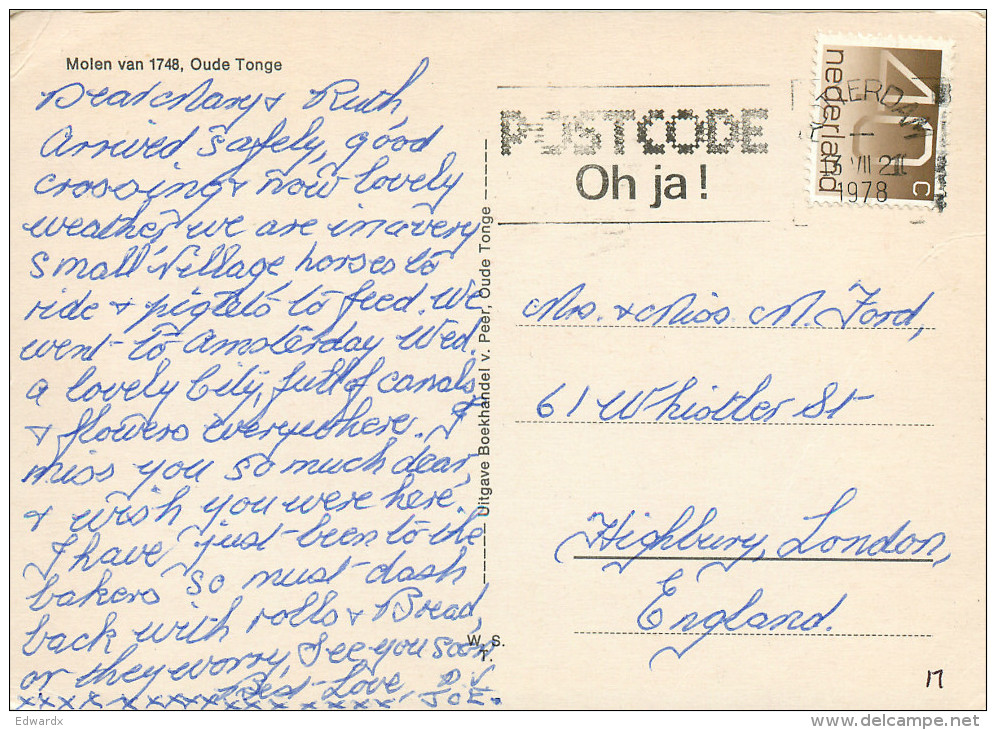 Molen van 1748, Oude Tonge
Dear Mary & Ruth,
Arrived Safely, good
crossing & now lovely
weather, we are in a very
small Village, horses to
ride & piglets to feed. We
went to Amsterday Wed.
a lovely City, full of canals
& flowers everywhere. I
miss you so much dear,
& wish you were here.
I have just been to the
bakers so must dash
back with rolls & Bread,
or they worry, See you soon
Best Love, D.V.
xxxx xxxxxx xxxxxxx xxxx, JOE.
Uitgave Boekhandel v. Peer, Oude Tonge
W. S.
T.
POSTCODE
Oh ja!
TERDAM
VII 21
1978
nederland
40
c
Mrs. & Miss M. Ford,
61 Whistler St
Highbury, London,
England.
17
Edwardx
www.delcampe.net